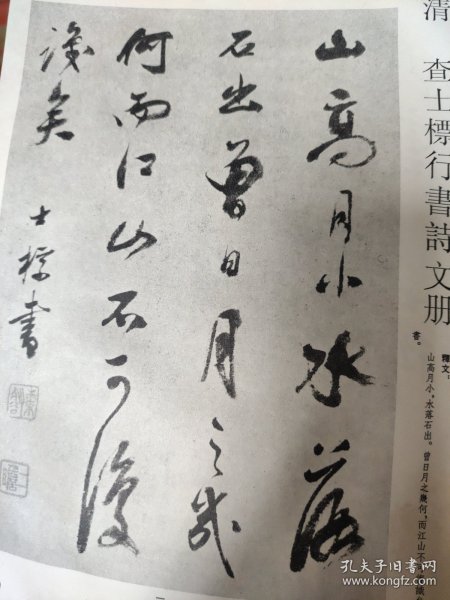 清 查士標行書詩文册
釋文:
山高月小,水落石出。曾日月之幾何,而江山不
書。
山高月小水落
石出曾日月之幾
何而江山不可復
識矣
士標書
孔夫子旧书网
www.kongfz.com